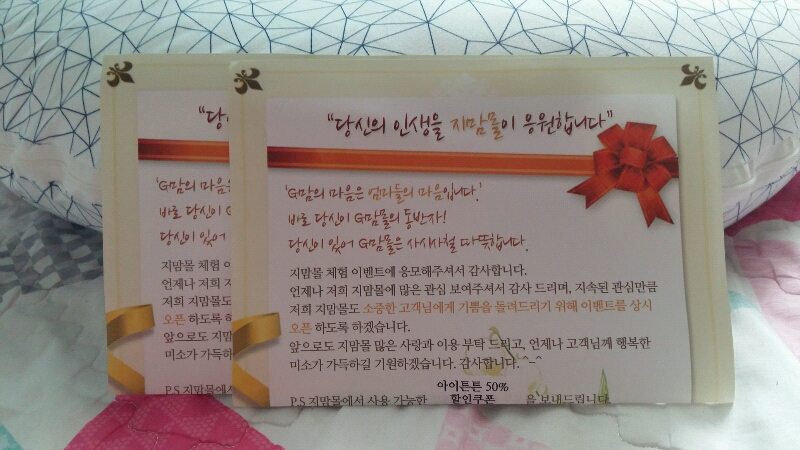 "당신의 인생을 지맘몰이 응원합니다"
'G맘의 마음은 엄마들의 마음입니다.'
바로 당신이 G맘몰의 동반자!
당신이 있어 G맘몰은 사시사철 따뜻합니다.
지맘몰 체험 이벤트에 응모해주셔서 감사합니다.
언제나 저희 지맘몰에 많은 관심 보여주셔서 감사 드리며, 지속된 관심만큼
저희 지맘몰도 소중한 고객님에게 기쁨을 돌려드리기 위해 이벤트를 상시
오픈 하도록 하겠습니다.
앞으로도 지맘몰 많은 사랑과 이용 부탁 드리고, 언제나 고객님께 행복한
미소가 가득하길 기원하겠습니다. 감사합니다. ^-^
아이튼튼 50%
P.S 지맘몰에서 사용 가능한 할인쿠폰 을 보내드립니다.
"당
'G맘의 마음은
바로 당신이 G
당신이 있어
지맘몰 체험 이
언제나 저희 지
저희 지맘몰도
오픈 하도록 하
앞으로도 지맘
미소가 가득하
P.S 지맘몰에서